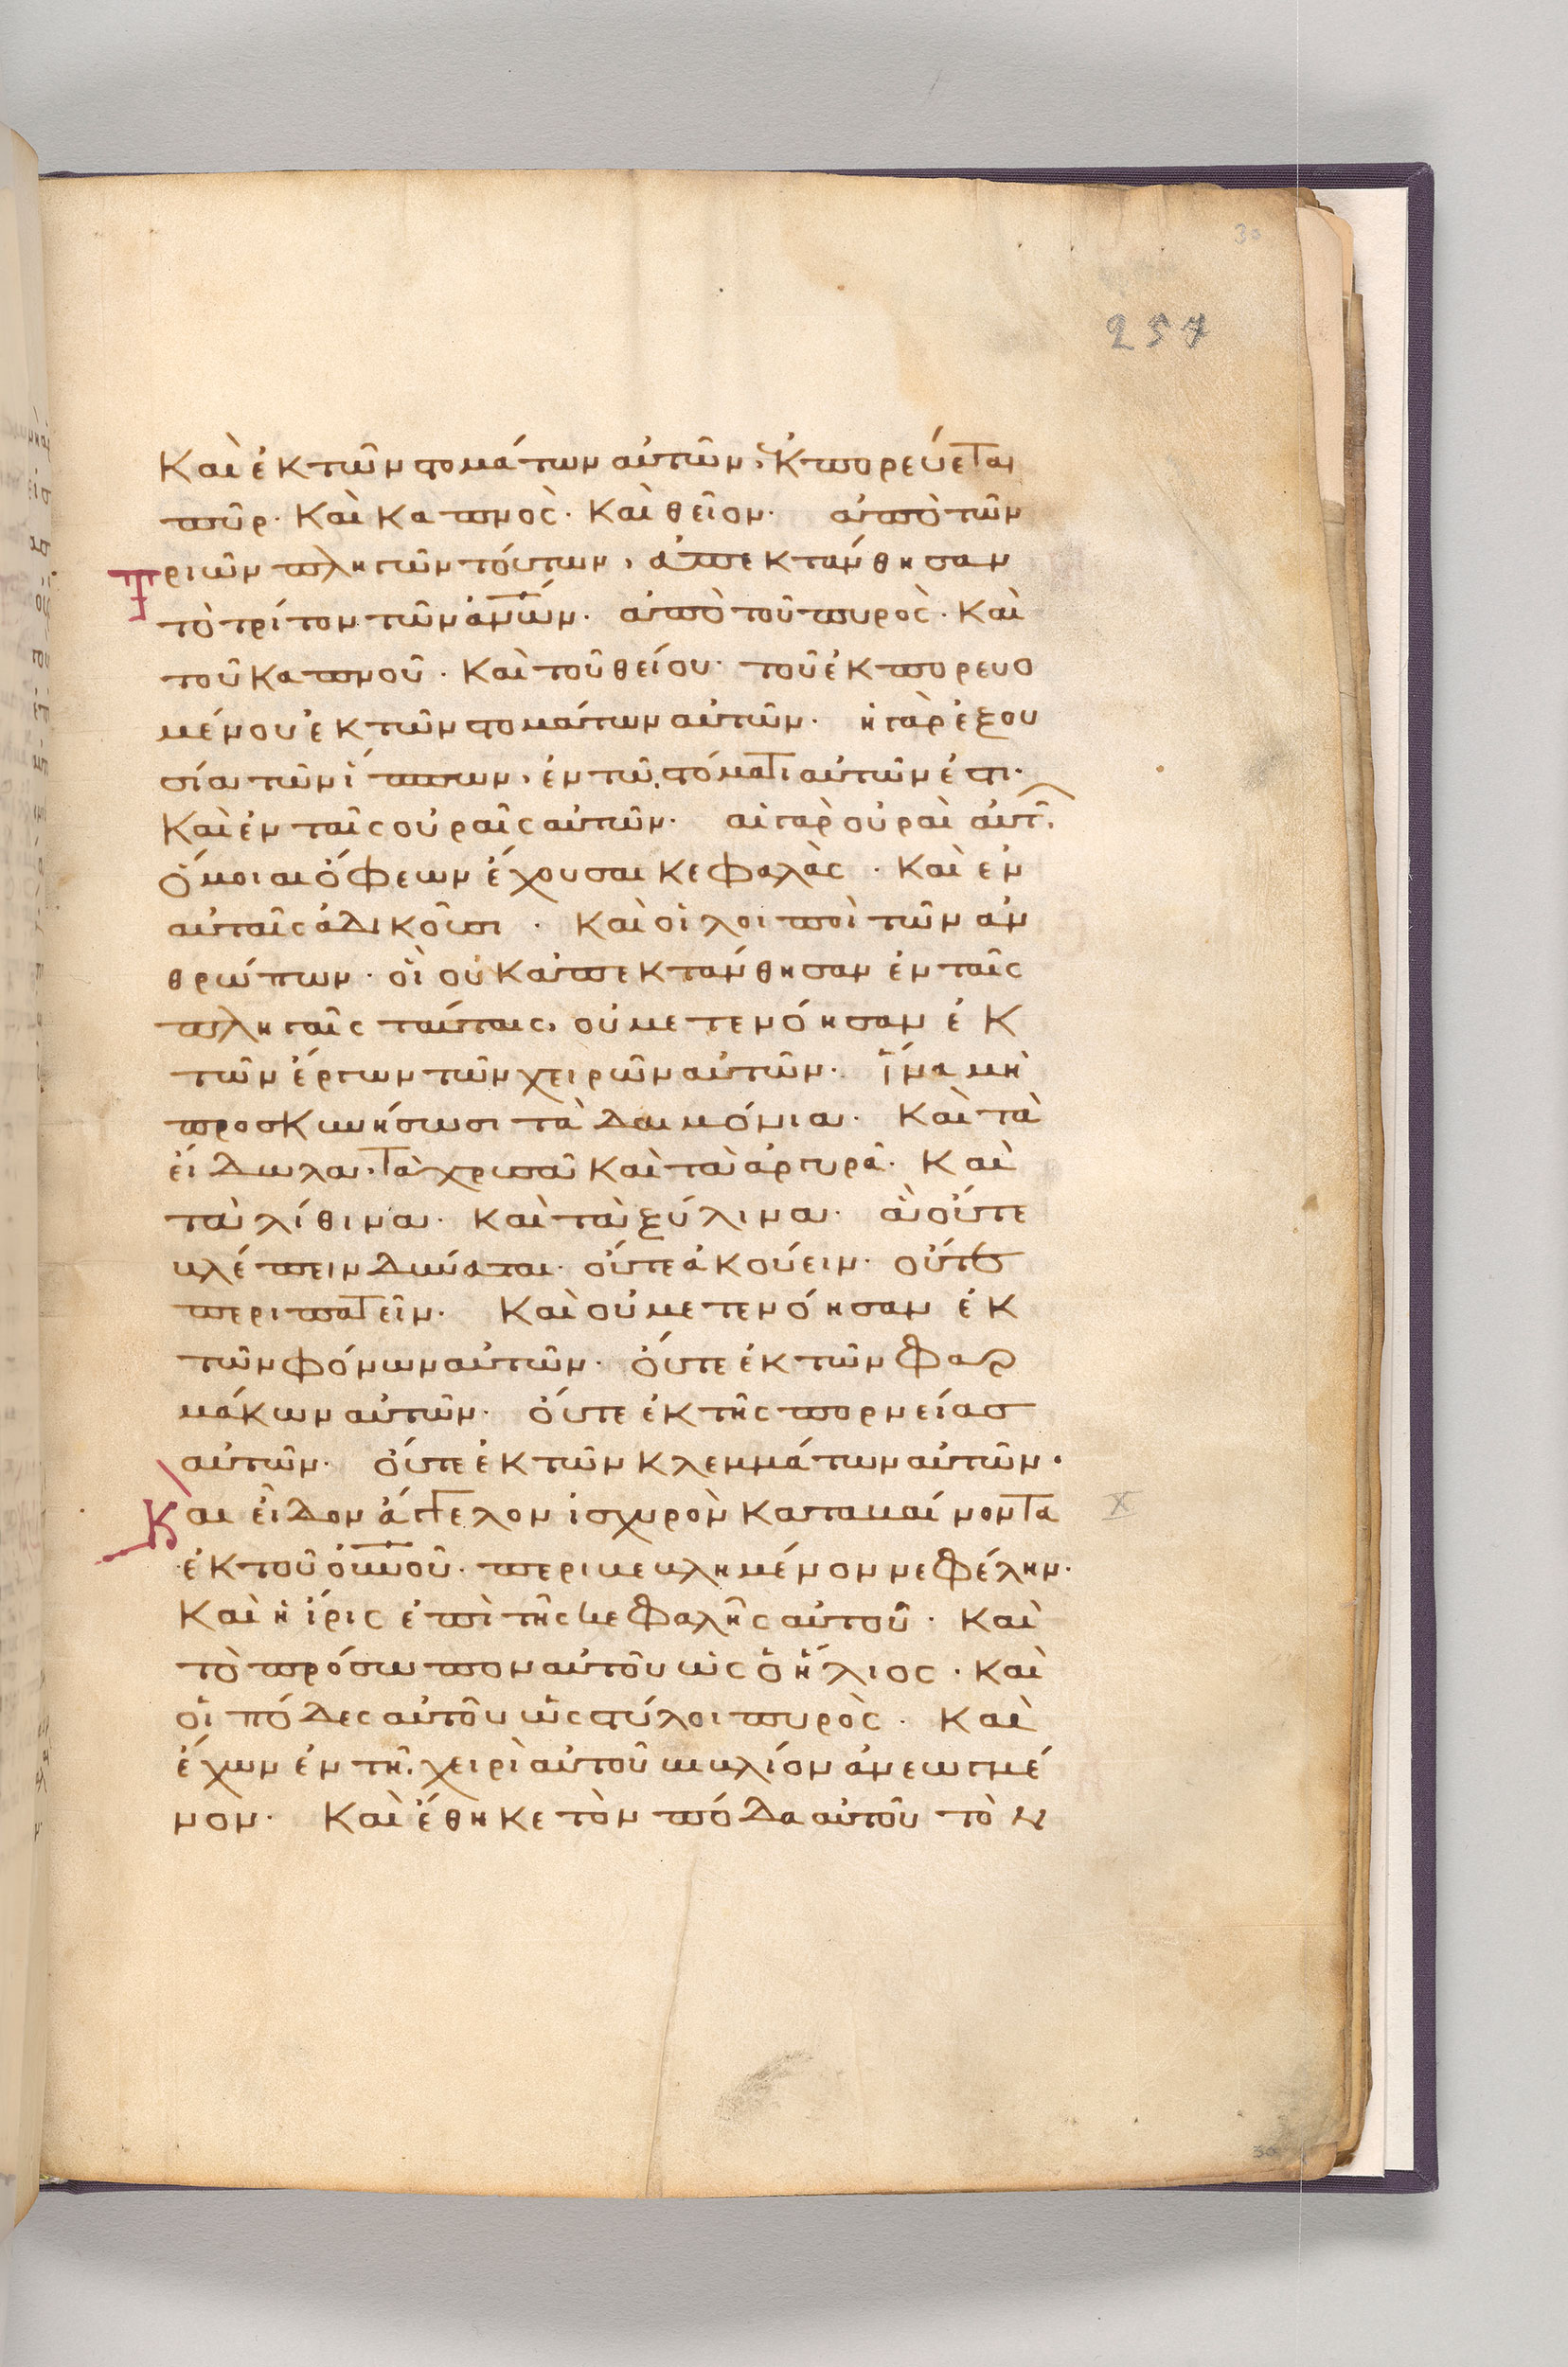 30
257
Καὶ ἐκ τῶν στομάτων αὐτῶν, ἐκπορεύεται
πῦρ· Καὶ καπνὸς· Καὶ θεῖον· ἀπὸ τῶν
τριῶν πληγῶν τούτων, ἀπεκτάνθησαν
τὸ τρίτον τῶν ἀνῶν· ἀπὸ τοῦ πυρὸς· Καὶ
τοῦ καπνοῦ· Καὶ τοῦ θείου· τοῦ ἐκπορευο
μένου ἐκ τῶν στομάτων αὐτῶν· ἡ γὰρ ἐξου
σία τῶν ἵππων, ἐν τῷ στόματι αὐτῶν ἐστι·
Καὶ ἐν ταῖς οὐραῖς αὐτῶν· αἱ γὰρ οὐραὶ αὐτ
ὅμοιαι ὄφεων ἔχουσαι κεφαλὰς· Καὶ ἐν
αὐταῖς ἀδικοῦσι· Καὶ οἱ λοιποὶ τῶν ἀν
θρώπων· οἳ οὐκ ἀπεκτάνθησαν ἐν ταῖς
πληγαῖς ταύταις, οὐ μετενόησαν ἐκ
τῶν ἔργων τῶν χειρῶν αὐτῶν· ἵνα μὴ
προσκυνήσωσι τὰ δαιμόνια· Καὶ τὰ
εἴδωλα· τὰ χρυσᾶ Καὶ τὰ ἀργυρᾶ· Καὶ
τὰ λίθινα· Καὶ τὰ ξύλινα· ἃ οὔτε
βλέπειν δύναται· οὔτε ἀκούειν· οὔτε
περιπατεῖν· Καὶ οὐ μετενόησαν ἐκ
τῶν φόνων αὐτῶν· οὔτε ἐκ τῶν φαρ
μάκων αὐτῶν· οὔτε ἐκ τῆς πορνείας
αὐτῶν· οὔτε ἐκ τῶν κλεμμάτων αὐτῶν·
Καὶ εἶδον ἄγγελον ἰσχυρὸν καταβαίνοντα
X
ἐκ τοῦ οὐνοῦ· περιβεβλημένον νεφέλην·
Καὶ ἡ ἶρις ἐπὶ τῆς κεφαλῆς αὐτοῦ· Καὶ
τὸ πρόσωπον αὐτοῦ ὡς ὁ ἥλιος· Καὶ
οἱ πόδες αὐτοῦ ὡς στύλοι πυρὸς· Καὶ
ἔχων ἐν τῇ χειρὶ αὐτοῦ βιβλίον ἀνεωγμέ
νον· Καὶ ἔθηκε τὸν πόδα αὐτοῦ τὸν
30